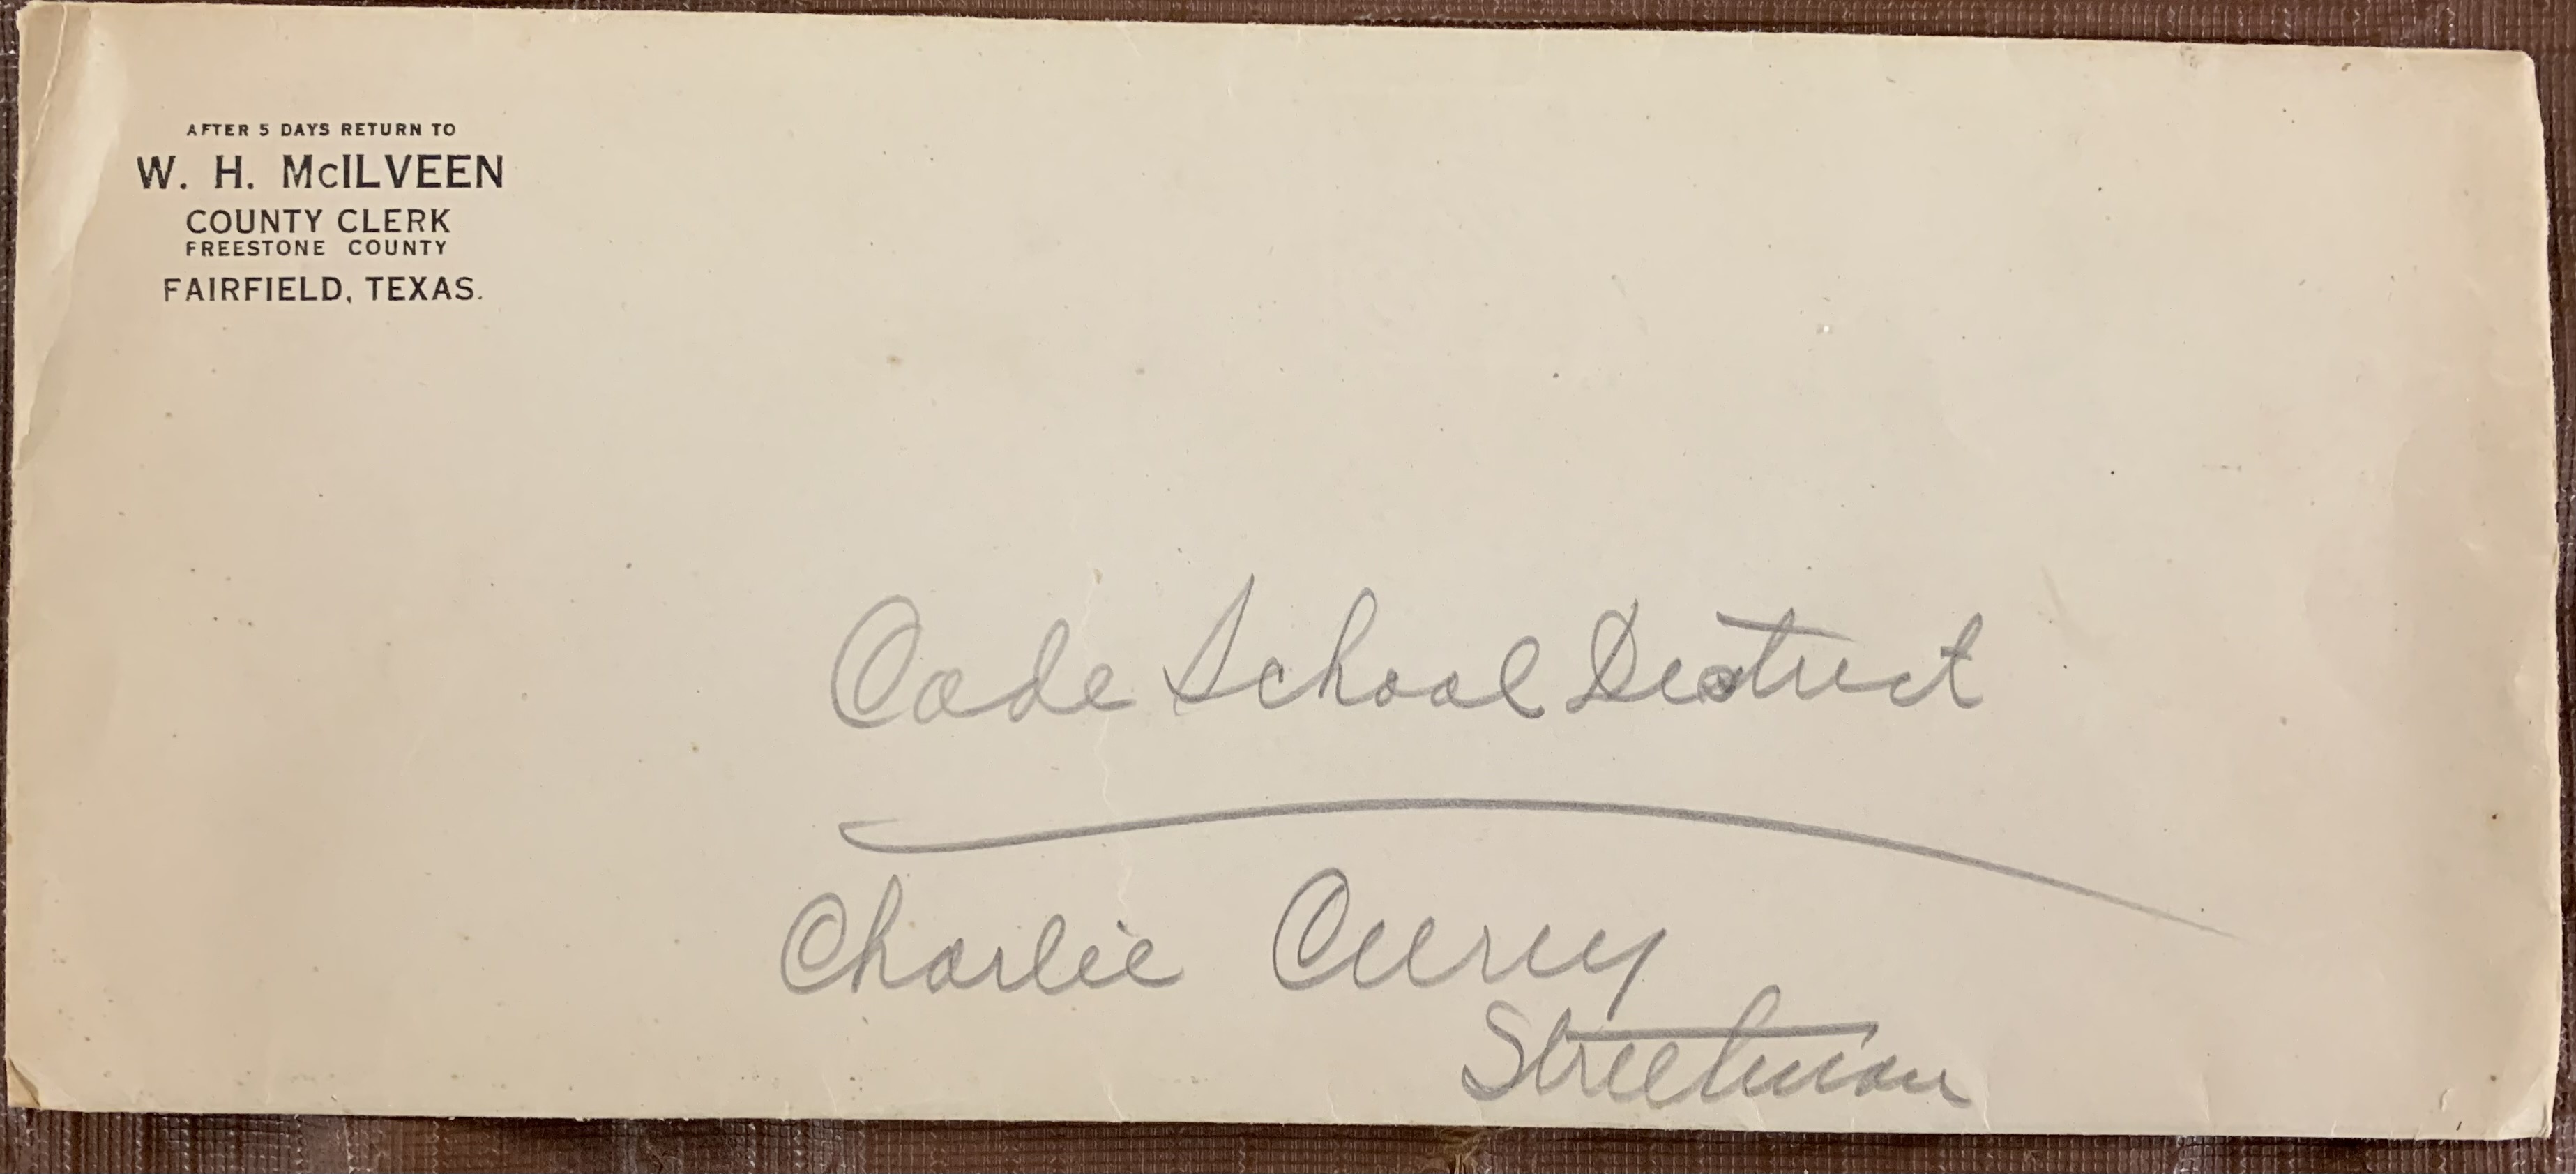 AFTER 5 DAYS RETURN TO
W. H. McILVEEN
COUNTY CLERK
FREESTONE COUNTY
FAIRFIELD, TEXAS.
Cade School District
Charlie Curry
Streetman